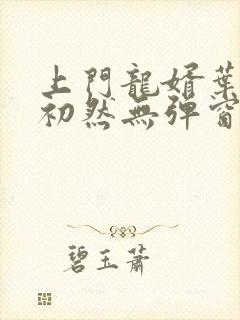 上門龍婿葉
初然無彈窗
碧玉蕭